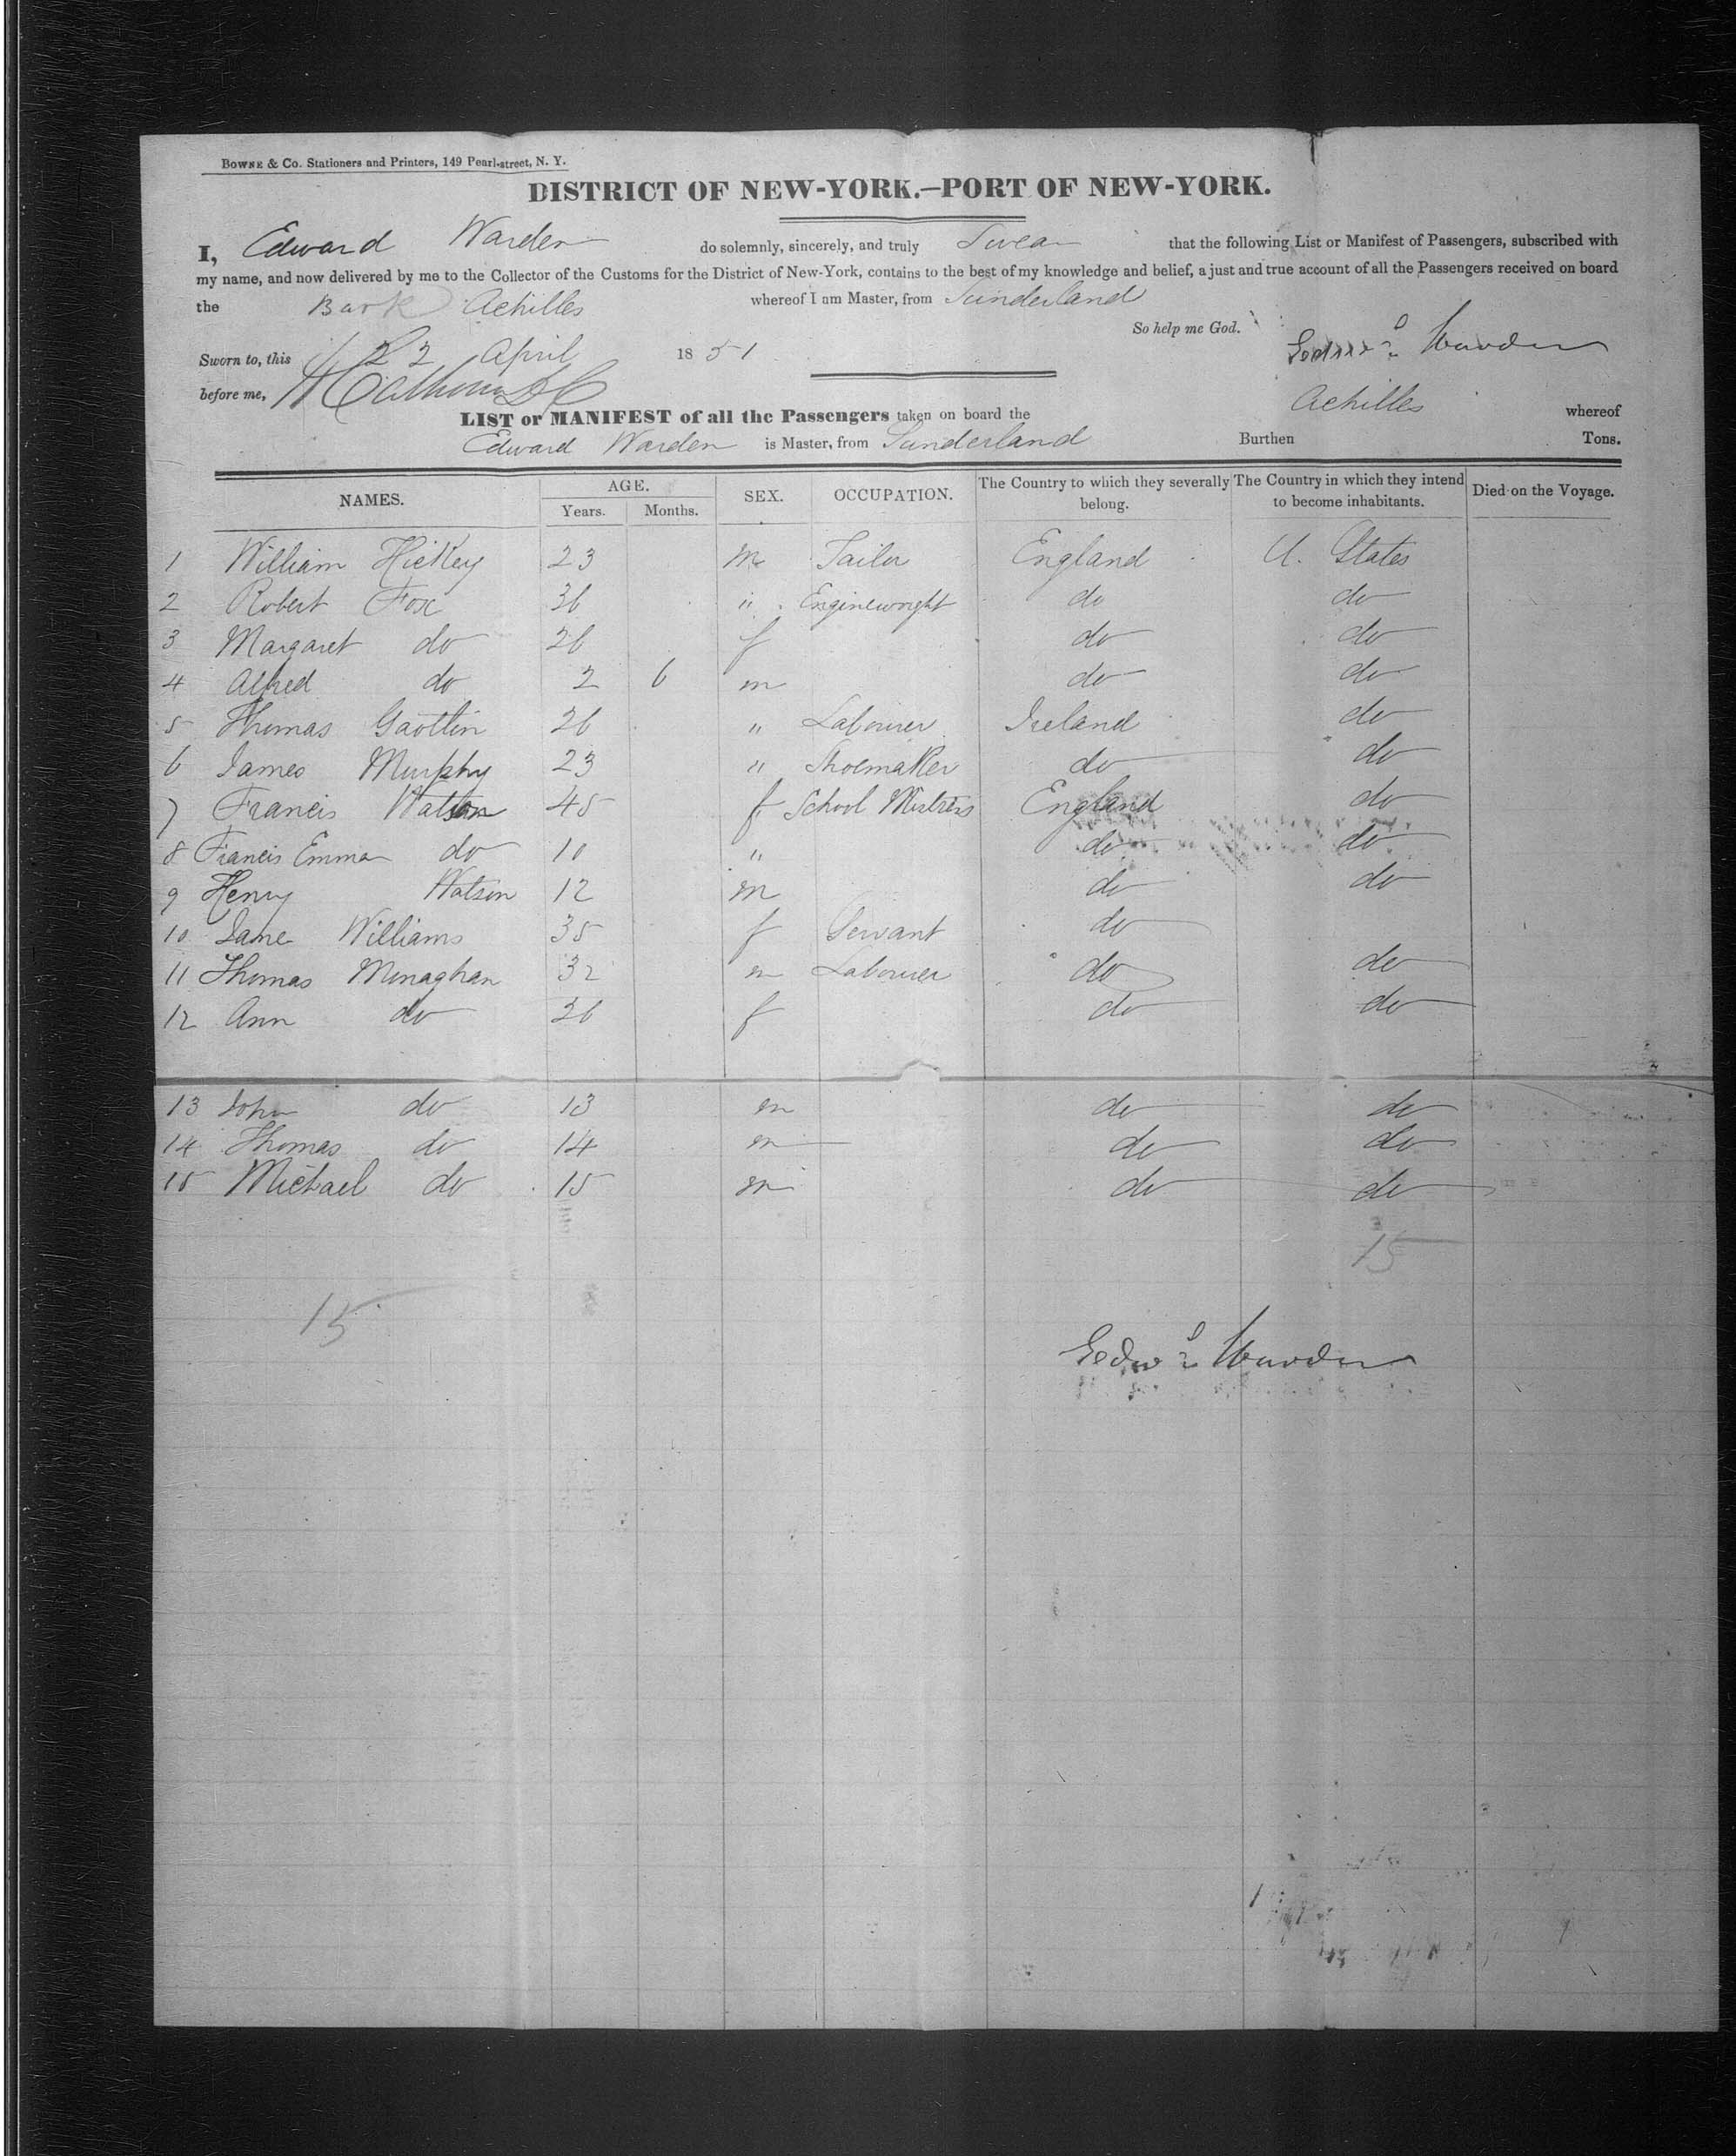 BOWNE & Co. Stationers and Printers, 149 Pearl-street, N. Y.
DISTRICT OF NEW-YORK.—PORT OF NEW-YORK.
I, Edward Warden do solemnly, sincerely, and truly Swear that the following List or Manifest of Passengers, subscribed with
my name, and now delivered by me to the Collector of the Customs for the District of New-York, contains to the best of my knowledge and belief, a just and true account of all the Passengers received on board
the Bark Achilles whereof I am Master, from Sunderland
So help me God.
Sworn to, this 22 April 1851 Edwd Warden
before me,
LIST or MANIFEST of all the Passengers taken on board the Achilles whereof
Edward Warden is Master, from Sunderland Burthen Tons.
NAMES. AGE. Years. Months. SEX. OCCUPATION. The Country to which they severally belong. The Country in which they intend to become inhabitants. Died on the Voyage.
1 William Hickey 23 m Tailor England U. States
2 Robert Fox 36 " Enginewright do do
3 Margaret do 26 f do do
4 Alfred do 2 6 m do do
5 Thomas 26 " Labourer Ireland do
6 James Murphy 23 " Shoemaker do do
7 Francis Watson 45 f School Mistress England do
8 Francis Emma do 10 " do do
9 Henry Watson 12 m do do
10 Jane Williams 35 f Servant do
11 Thomas Monaghan 32 m Labourer do do
12 Ann do 36 f do do
13 John do 13 m do do
14 Thomas do 14 m do do
15 Michael do 15 m do do
15
15
Edwd Warden